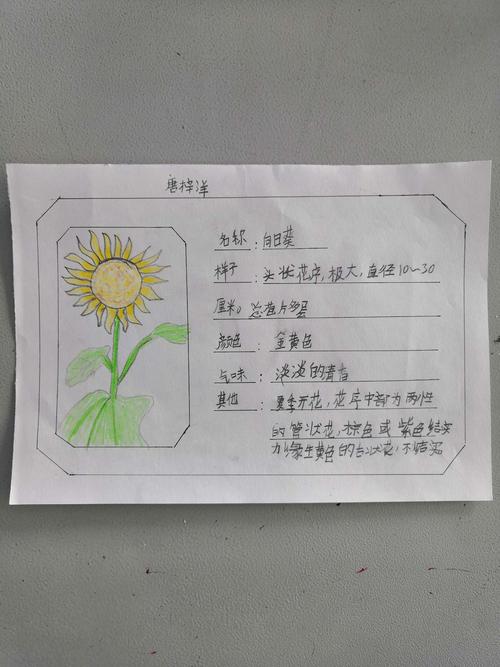 唐梓洋
名称：向日葵
样子：头状花序，极大，直径10~30
厘米。总苞片多层
颜色：金黄色
气味：淡淡的青香
其他：夏季开花，花序中部为两性
的管状花，棕色或紫色结实
缘生黄色的舌状花，不结实